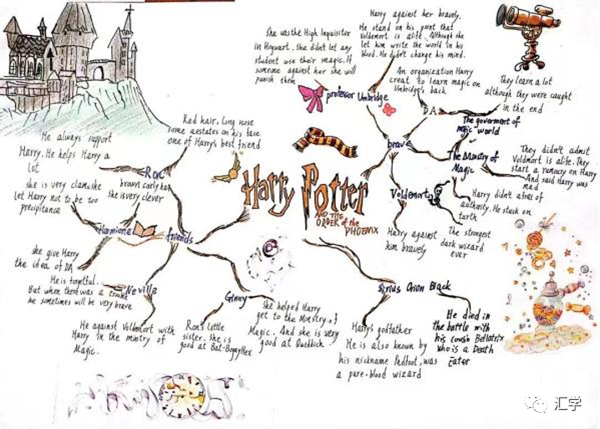 She was the High Inquisitor
in Hogwart. She didn't let any
student use their magic. If
someone against her she will
punish them
professor Umbridge
Harry against her bravely.
He stand on his point that
Voldemort is alife. Although she
let him write the world in his
blood. He didn't change his mind.
An organization Harry
creat to learn magic on
Umbridge's back
DA
They learn a lot
although they were caught
in the end
brave
The goverment of
magic world
The Ministry of
Magic
They didn't admit
Voldmort is alife. They
start a rumury on Harry
And said Harry was
mad
Harry didn't afres of
authority. He stuck on
turth
Voldemort
Harry against
him bravely
The strongest
dark wizard
ever
Harry Potter
AND THE
ORDER of the
PHOENIX
Red hair, long nose
some on his face
one of Harry's best friend
He always support
Harry. He helps Harry a
lot
Ron
she is very clam. she
let Harry not to be too
precipitance
brown curly hair
she is very clever
Hermione
friends
she give Harry
the idea of DA
He is forgetful.
But when there was a
he sometimes will be very brave
Neville
He against Voldemort with
Harry in the minstry of
Magic.
Ron's little
sister. She is
good at Bat-Bogey Hex
Ginny
she helped Harry
get to the Minstry of
Magic. And she is very
good at Quddich
Sirius Orion Black
Harry's godfather
He is also known by
his nickname Padfoot, was
a pure-blood wizard
He died in
the battle with
his cousin Bellatrix
who is a Death
Eater
汇学